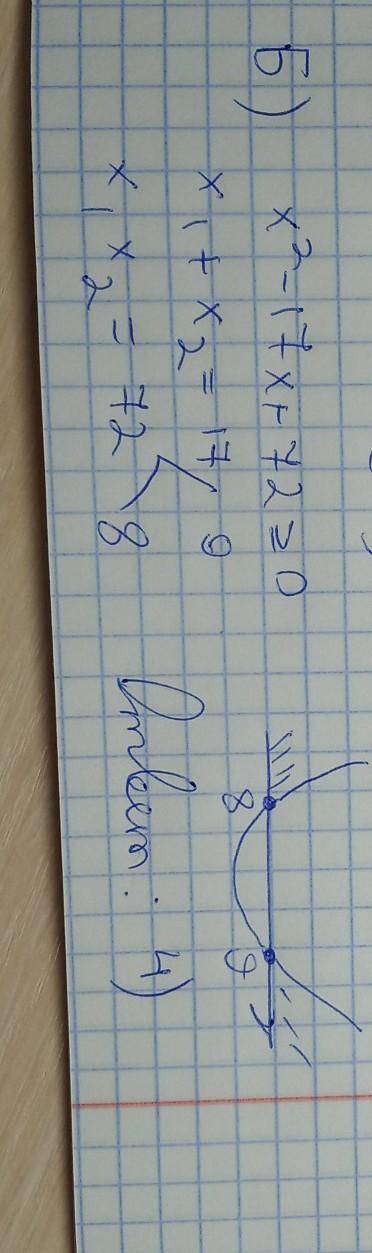 Б) x² - 17x + 72 ≥ 0
x₁ + x₂ = 17
9
x₁ x₂ = 72
8
8 9
Ответ: 4)